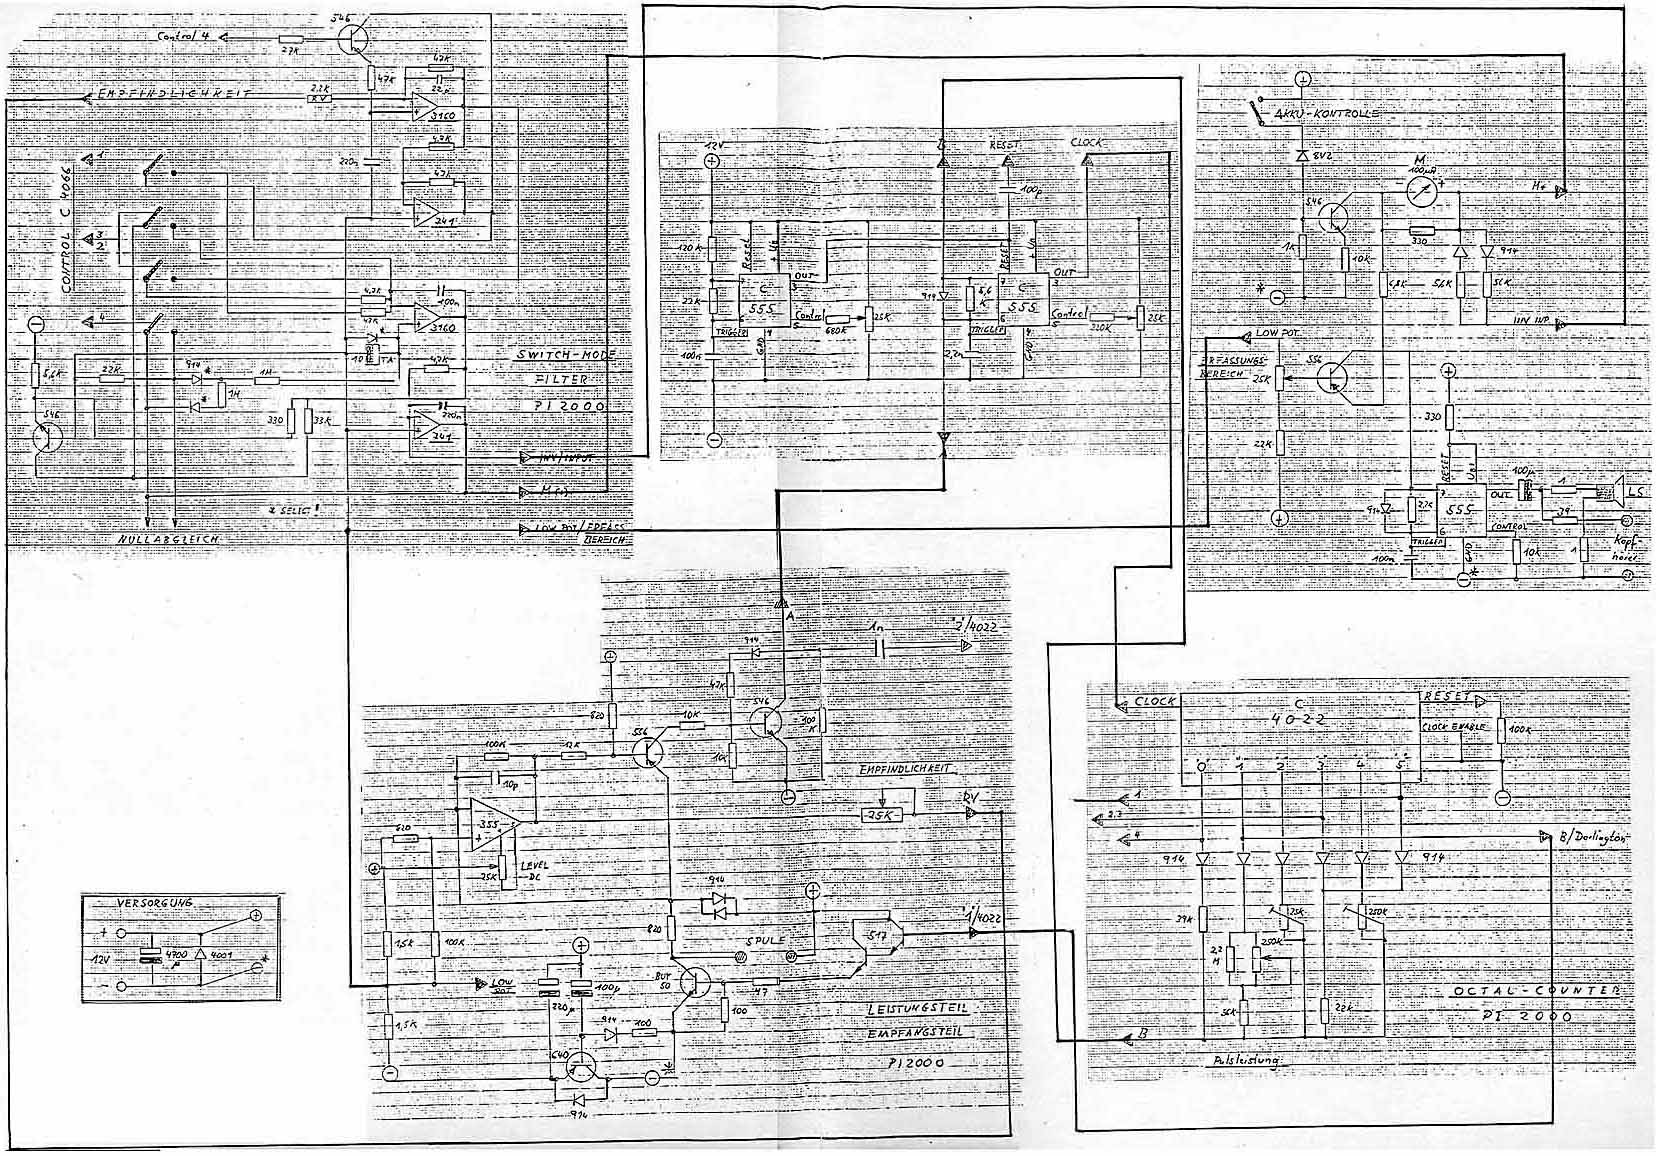 546
Control 4
27K
47K
47K
22p
EMPFINDLICHKEIT
2.2K
RV
3160
1
4,7K
220n
47K
CONTROL C 4066
741
3
2
4,7K
100n
47K
3160
4
10
TA
4,7K
SWITCH-MODE
FILTER
PI 2000
5,6K
22K
914
*
1M
1M
330
33K
220n
546
741
INV/INPUT
M(+)
* SELECT!
LOW POT/ERFASS
BEREICH
NULLABGLEICH
12V
B
RESET
CLOCK
100p
120K
Reset
+Ub
RESET
OUT
OUT
C
555
22K
Control
680K
25K
TRIGGER
GND
100n
914
5,6
K
C
555
Control
220K
25K
TRIGGER
GND
2,2n
AKKU-KONTROLLE
8V2
M
100µA
M+
546
1K
10K
330
914
6,8K
56K
56K
*
INV INP.
LOW POT.
ERFASSUNGS-
BEREICH
25K
556
330
22K
RESET
100µ
914
2,2K
555
OUT
1
LS
39
TRIGGER
CONTROL
GND
100n
10K
1
Kopf-
hörer
*
A
914
1n
"2"/4022
47K
820
10K
546
100
K
556
10K
100K
12K
10p
EMPFINDLICHKEIT
RV
25K
820
355
LEVEL
DC
25K
914
820
SPULE
517
"1"/4022
1,5K
100K
LOW
POT
BUT
50
47
220µ
100µ
100
LEISTUNGSTEIL
EMPFANGSTEIL
PI 2000
1,5K
914
100
640
914
CLOCK
C
4022
RESET
CLOCK ENABLE
100K
"0"
"1"
"2"
3
4
"5"
1
2,3
4
B/Darlington
914
914
39K
25K
250K
2,2
M
250K
56K
22K
B
OCTAL-COUNTER
PI 2000
Pulsleistung
VERSORGUNG
12V
4700
µ
4001
*